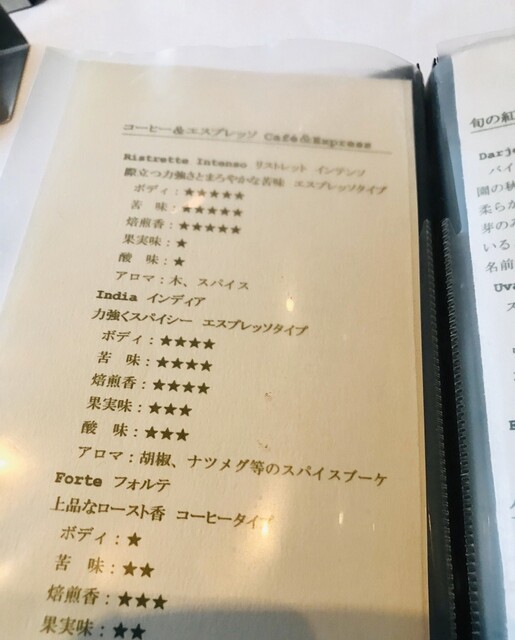 コーヒー＆エスプレッソ Café&Espress
Ristrette Intenso リストレット インテンソ
際立つ力強さとまろやかな苦味 エスプレッソタイプ
ボディ：★★★★★
苦　味：★★★★★
焙煎香：★★★★★
果実味：★
酸　味：★
アロマ：木、スパイス
India インディア
力強くスパイシー エスプレッソタイプ
ボディ：★★★★
苦　味：★★★★
焙煎香：★★★★
果実味：★★★
酸　味：★★★
アロマ：胡椒、ナツメグ等のスパイスブーケ
Forte フォルテ
上品なロースト香 コーヒータイプ
ボディ：★
苦　味：★★
焙煎香：★★★
果実味：★★
旬の紅
Darj
バイ
園の
柔らか
芽の
いる
名前
Uva